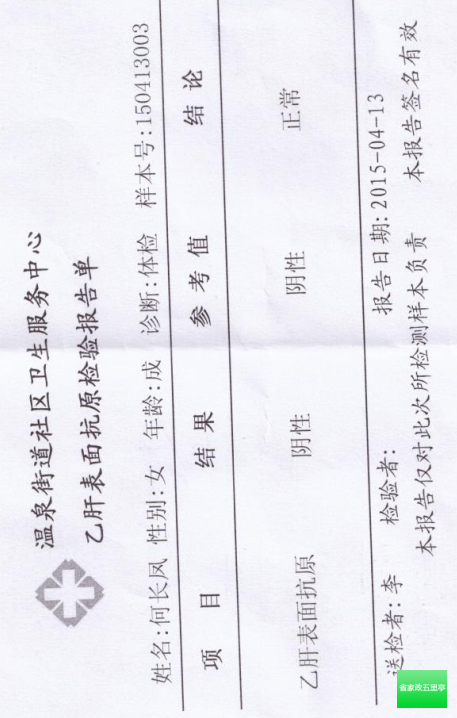 温泉街道社区卫生服务中心
乙肝表面抗原检验报告单
姓名:何长凤 性别:女 年龄:成 诊断:体检 样本号:150413003
项 目 结 果 参 考 值 结 论
乙肝表面抗原 阴性 阴性 正常
送检者:李 检验者: 报告日期:2015-04-13
本报告仅对此次所检测样本负责 本报告签名有效
省家政五里亭